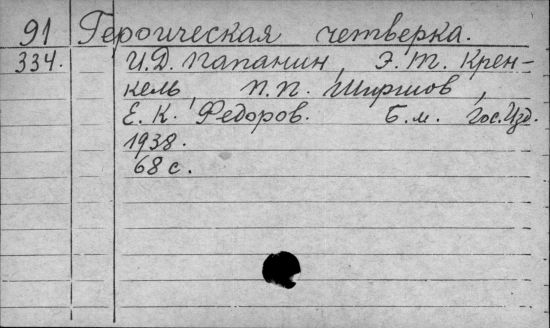 91 Героическая четверка.
334. И.Д. Папанин, Э.Т. Крен-
кель, П.П. Ширшов,
Е.К. Федоров. Б.м. Гос.Изд.
1938.
68 с.